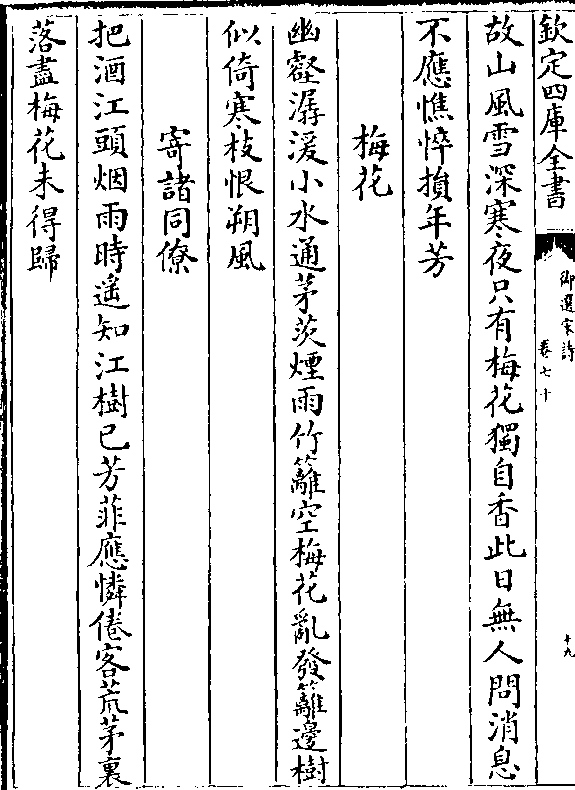 欽定四庫全書
御選宋詩
卷七十
十九
故山風雪深寒夜只有梅花獨自香此日無人問消息
不應憔悴損年芳
梅花
幽壑潺湲小水通茅茨煙雨竹籬空梅花亂發籬邊樹
似倚寒枝恨朔風
寄諸同僚
把酒江頭烟雨時遙知江樹已芳菲應憐倦客荒茅裏
落盡梅花未得歸